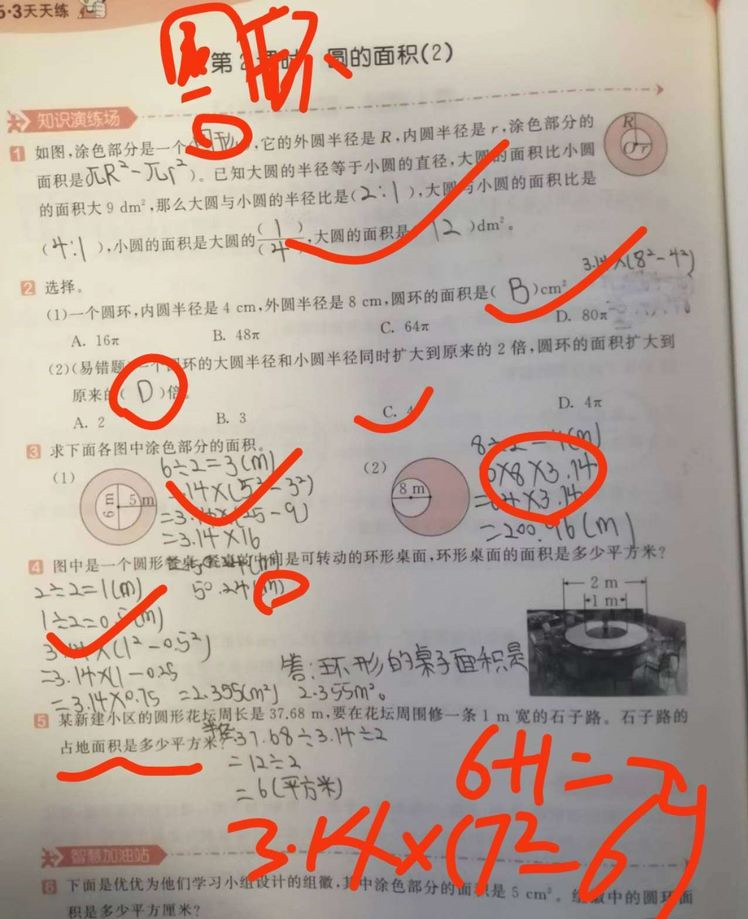 5·3天天练
第2课时 圆的面积(2)
形
知识演练场
1 如图,涂色部分是一个(形),它的外圆半径是R,内圆半径是r,涂色部分的
面积是πR²-πr²)。已知大圆的半径等于小圆的直径,大圆的面积比小圆
的面积大9 dm²,那么大圆与小圆的半径比是(2:1),大圆与小圆的面积比是
(4:1),小圆的面积是大圆的(1)/(4),大圆的面积是12)dm²。
R
r
2 选择。
3.14×(8²-4²)
(1)一个圆环,内圆半径是4 cm,外圆半径是8 cm,圆环的面积是(B)cm²
A. 16π B. 48π C. 64π D. 80π
(2)(易错题)一个圆环的大圆半径和小圆半径同时扩大到原来的2倍,圆环的面积扩大到
原来的(D)倍。
A. 2 B. 3 C. 4 D. 4π
3 求下面各图中涂色部分的面积。
(1)
6 m
5 m
6÷2=3(m)
3.14×(5²-3²)
=3.14×(25-9)
=3.14×16
50.24(m)
(2)
8 m
8÷2=4(m)
×8×3.14
=64×3.14
=200.96(m)
4 图中是一个圆形餐桌,餐桌的中间是可转动的环形桌面,环形桌面的面积是多少平方米?
2÷2=1(m)
1÷2=0.5(m)
3.14×(1²-0.5²)
=3.14×(1-0.25
=3.14×0.75 =2.355(m²)
答:环形的桌子面积是
2.355m²。
2 m
1 m
5 某新建小区的圆形花坛周长是37.68 m,要在花坛周围修一条1 m宽的石子路。石子路的
占地面积是多少平方米?
半径
37.68÷3.14÷2
=12÷2
=6(平方米)
6+1=7
3.14×(7²-6²)
智慧加油站
6 下面是优优为他们学习小组设计的组徽,其中涂色部分的面积是5 cm²。组徽中的圆环面
积是多少平方厘米?